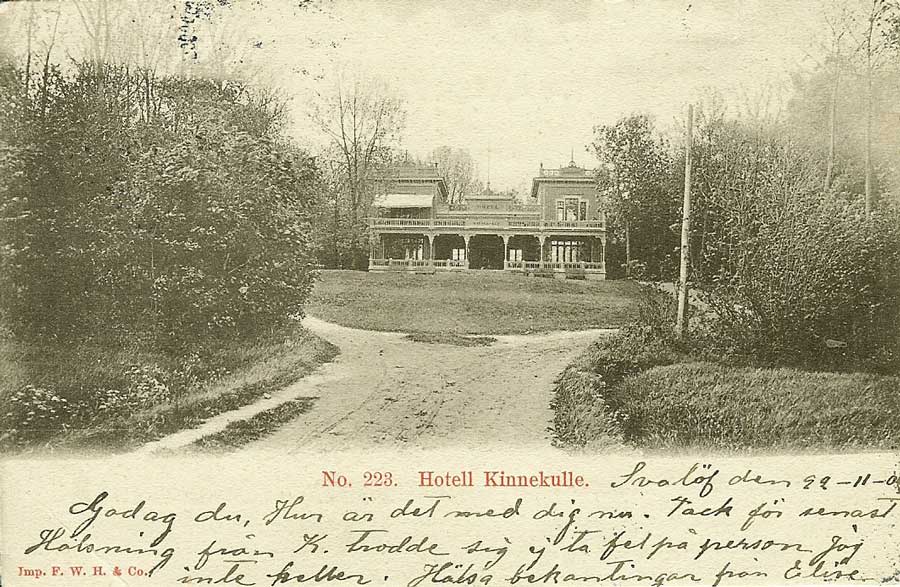 No. 223. Hotell Kinnekulle. Svalöf den 22-11-0
Godag du, Hur är det med dig nu. Tack för senast
Hälsning från K. trodde sig ej ta fel på person Jag
Imp. F. W. H. & Co. inte heller. Hälsa bekantingar från